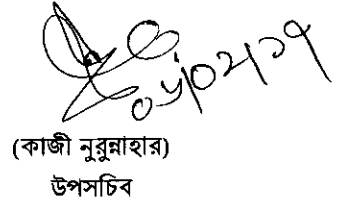 (কাজী নুরুন্নাহার)
উপসচিব